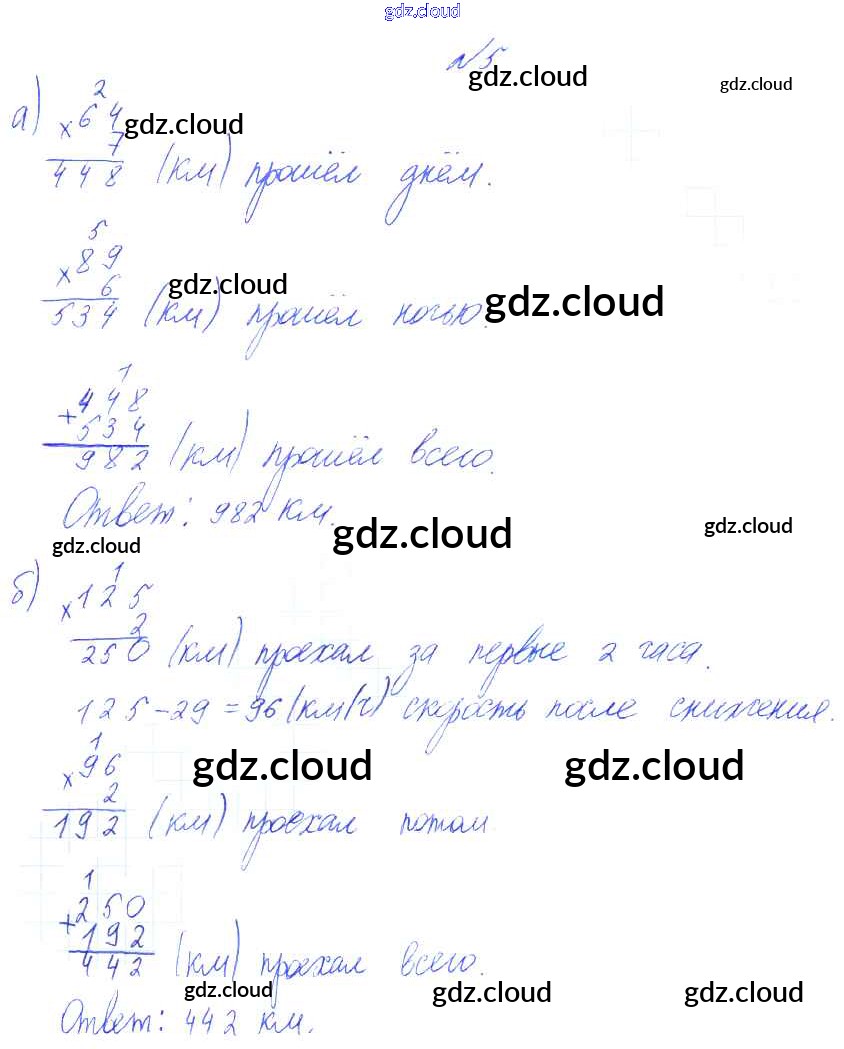 gdz.cloud
№5
gdz.cloud
gdz.cloud
а)
2
× 64 gdz.cloud
7
448 (км) прошёл днём.
5
× 89
6 gdz.cloud
534 (км) прошёл ночью. gdz.cloud
1
+ 448
534
982 (км) прошёл всего.
Ответ: 982 км.
gdz.cloud
gdz.cloud
gdz.cloud
б)
1
× 125
2
250 (км) проехал за первые 2 часа.
125 - 29 = 96 (км/ч) скорость после снижения.
1
× 96 gdz.cloud gdz.cloud
2
192 (км) проехал потом
1
+ 250
192
442 (км) проехал всего.
gdz.cloud gdz.cloud gdz.cloud
Ответ: 442 км.